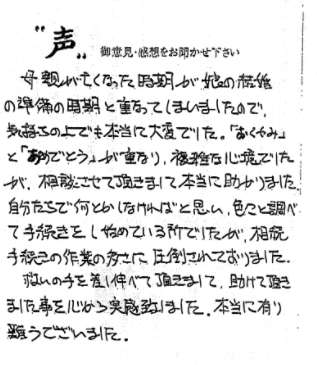 “声” 御意見・感想をお聞かせ下さい
母親が亡くなった時期が娘の結婚
の準備の時期と重なってしまいましたので、
気持ちの上でも本当に大変でした。「おくやみ」
と「おめでとう」が重なり、複雑な心境でした
が、相談させて頂きまして本当に助かりました。
自分たちで何とかしなければと思い、色々と調べ
て手続きをし始めている所でしたが、相続
手続きの作業の多さに圧倒されておりました。
救いの手を差し伸べて頂きまして、助けて頂き
ました事を心から実感致しました。本当に有り
難うございました。